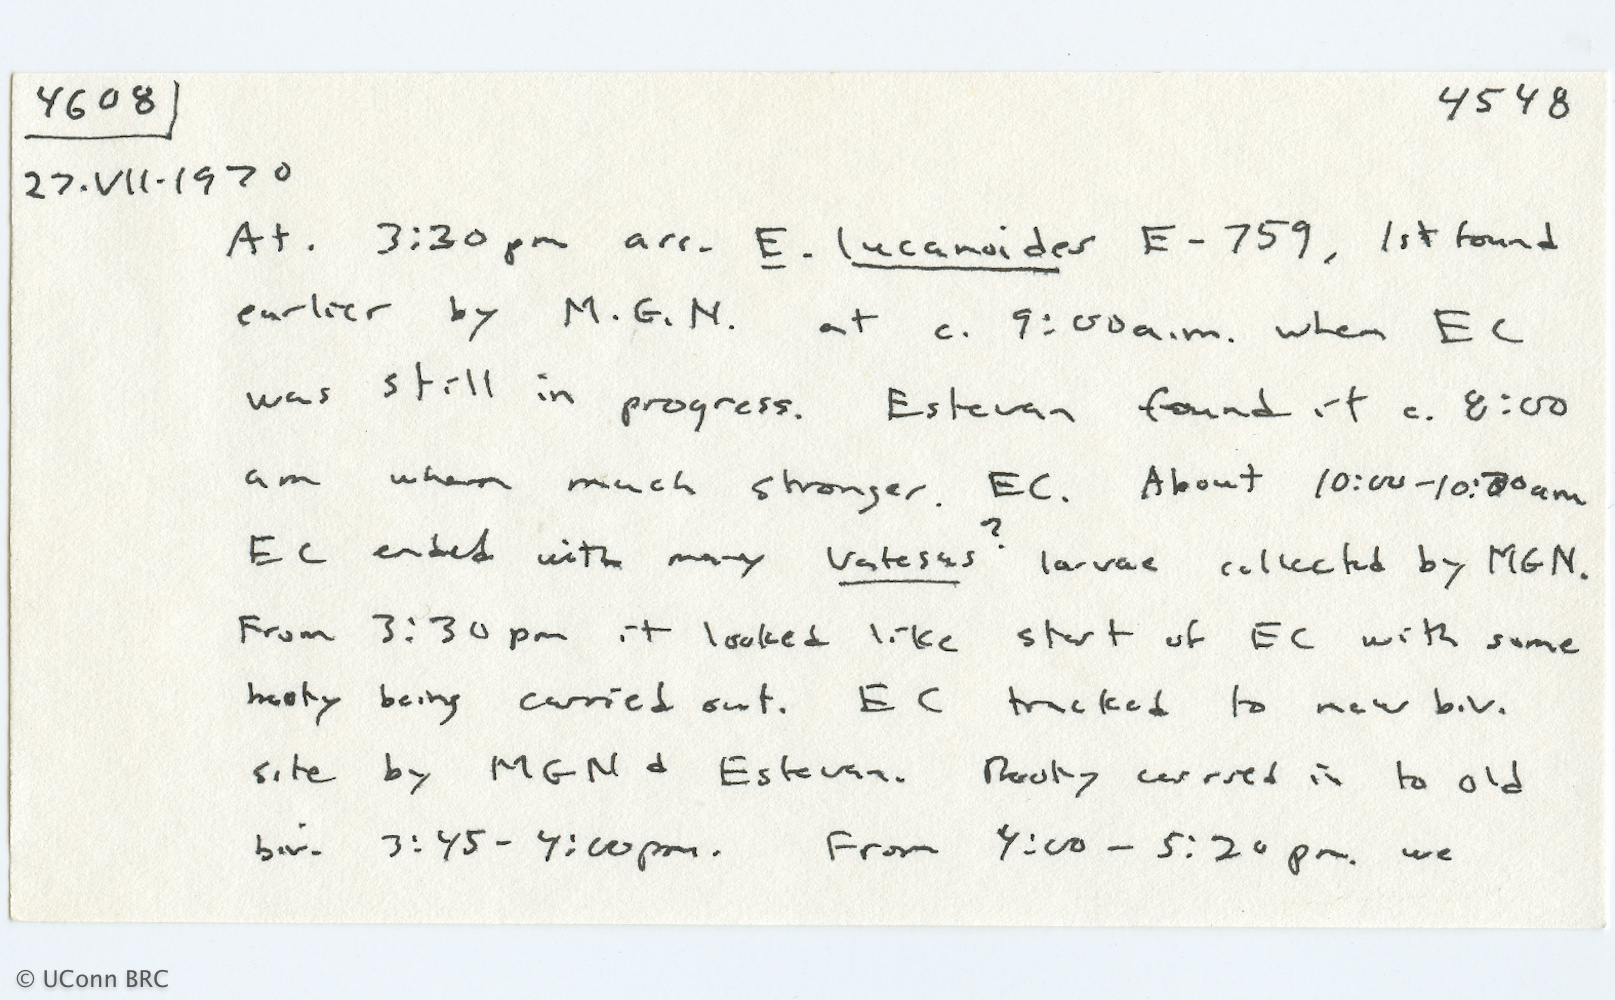 4608 4548
27.VII.1970
At. 3:30 pm arr. E. lucanoides E-759, 1st found
earlier by M.G.N. at c. 9:00 a.m. when EC
was still in progress. Estevan found it c. 8:00
am when much stronger. EC. About 10:00-10:30am
EC ended with many Vatesus? larvae collected by MGN.
From 3:30 pm it looked like start of EC with some
booty being carried out. EC tracked to new biv.
site by MGN & Estevan. Booty carried in to old
biv. 3:45-4:00pm. From 4:00 - 5:20 pm. we
© UConn BRC